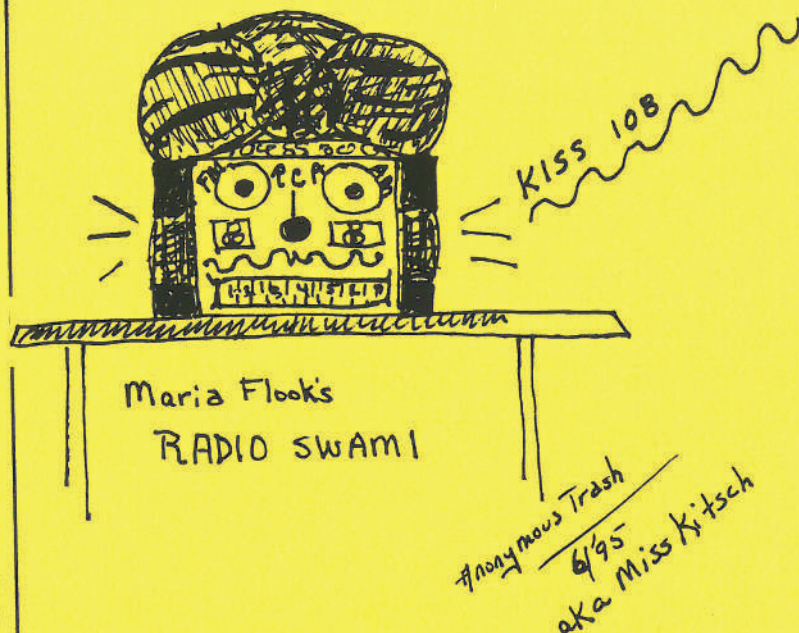 KISS 108
FM RCA AM
8 8
Maria Flook's
RADIO SWAMI
Anonymous Trash
6/95
aka Miss Kitsch